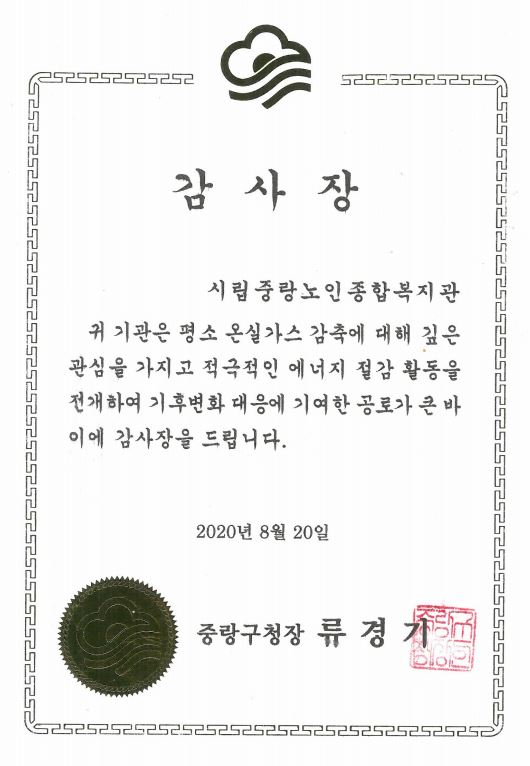 감 사 장
시립중랑노인종합복지관
귀 기관은 평소 온실가스 감축에 대해 깊은
관심을 가지고 적극적인 에너지 절감 활동을
전개하여 기후변화 대응에 기여한 공로가 큰 바
이에 감사장을 드립니다.
2020년 8월 20일
중랑구청장 류 경 기